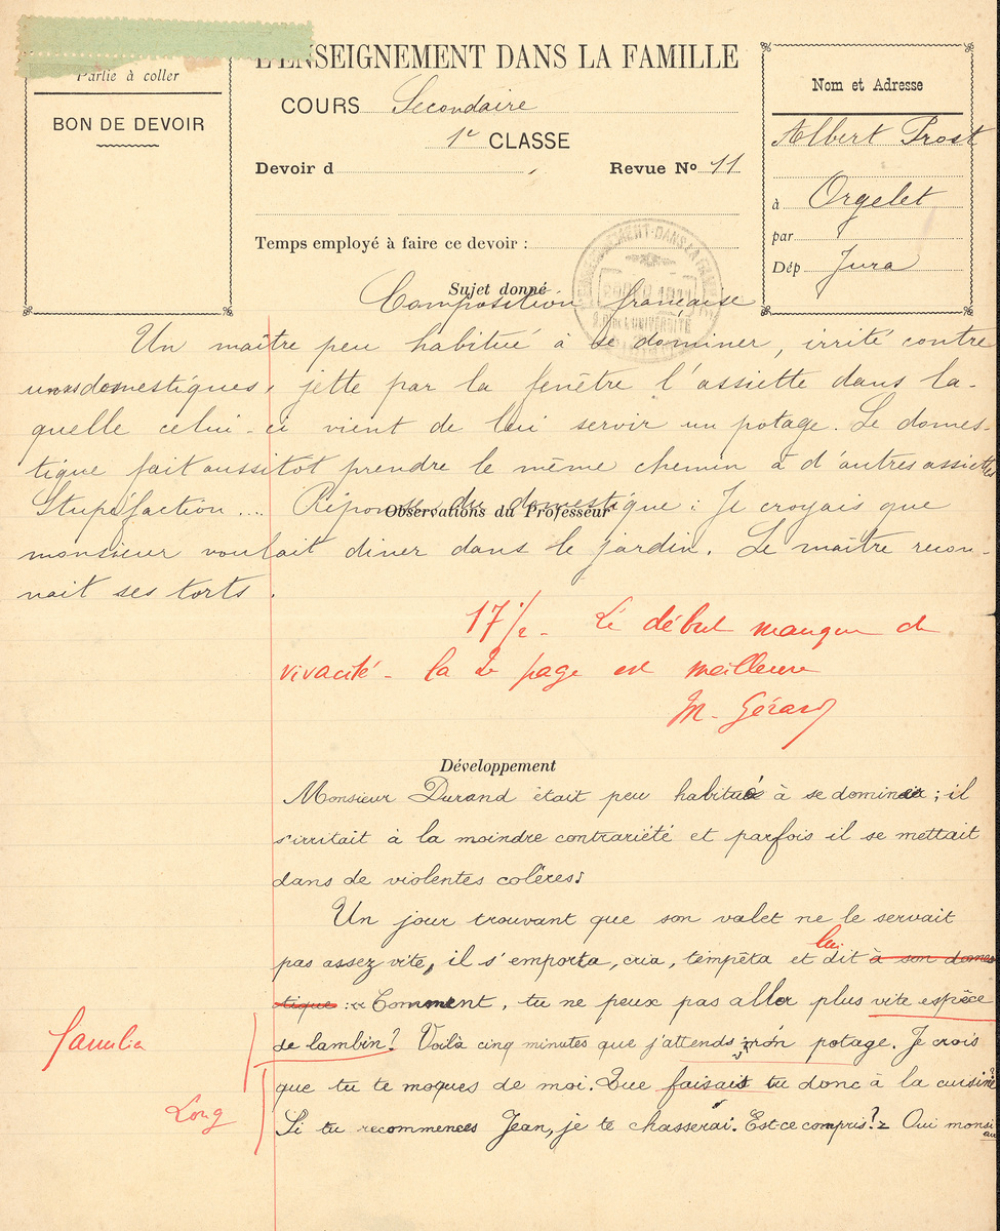 L'ENSEIGNEMENT DANS LA FAMILLE
Partie à coller
BON DE DEVOIR
COURS Secondaire
1re CLASSE
Devoir d
Revue No 11
Temps employé à faire ce devoir :
Nom et Adresse
Albert Prost
à Orgelet
par
Dép Jura
Sujet donné
Composition française
Un maître peu habitué à se dominer, irrité contre
un domestiques, jette par la fenêtre l'assiette dans la-
quelle celui-ci vient de lui servir un potage. Le domes-
tique fait aussitôt prendre le même chemin à d'autres assiettes
Stupéfaction... Réponse du domestique : Je croyais que
Observations du Professeur
monsieur voulait diner dans le jardin. Le maître recon-
nait ses torts.
17 1/2 - Le début manque de
vivacité - la 2e page est meilleure
M. Gérard
Développement
Monsieur Durand était peu habitué à se dominer ; il
s'irritait à la moindre contrariété et parfois il se mettait
dans de violentes colères.
Un jour trouvant que son valet ne le servait
lui
pas assez vite, il s'emporta, cria, tempêta et dit à son domes
tique : « Comment, tu ne peux pas aller plus vite espèce
familier
de lambin ? Voilà cinq minutes que j'attends mon potage. Je crois
que tu te moques de moi. Que faisais tu donc à la cuisine ?
Long
Si tu recommences Jean, je te chasserai. Est-ce compris ? - Oui monsi